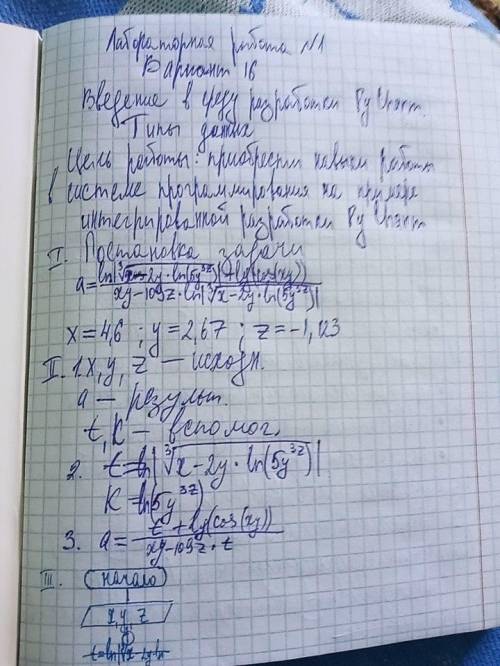 Лабораторная работа №1
Вариант 16
Введение в среду разработки Py Charm.
Типы данных
Цель работы: приобрести навыки работы
в системе программирования на примере
интегрированной разработки Py Charm
I. Постановка задачи
a = (ln|∛(x-2y·ln(5y^3z))| + lg(cos(xy))) / (xy-109z·ln|∛(x-2y·ln(5y^3z))|)
x=4,6 ; y=2,67 ; z=-1,123
II. 1. x, y, z — исходн.
a — результ.
t, K — вспомог.
2. t=ln|∛(x-2y·ln(5y^3z))|
K=ln(5y^3z)
3. a = (t + lg(cos(xy))) / (xy-109z·t)
III. начало
x, y, z